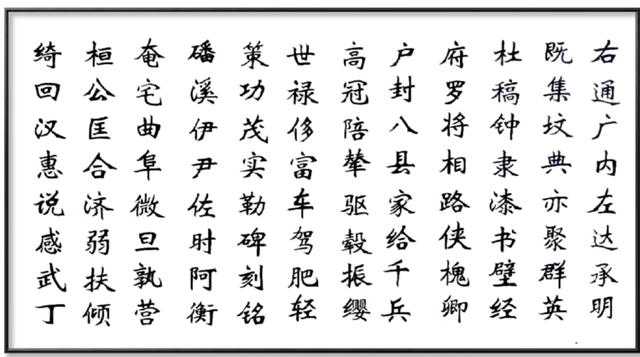 右通广内左达承明
既集坟典亦聚群英
杜稿钟隶漆书壁经
府罗将相路侠槐卿
户封八县家给千兵
高冠陪辇驱毂振缨
世禄侈富车驾肥轻
策功茂实勒碑刻铭
磻溪伊尹佐时阿衡
奄宅曲阜微旦孰营
桓公匡合济弱扶倾
绮回汉惠说感武丁